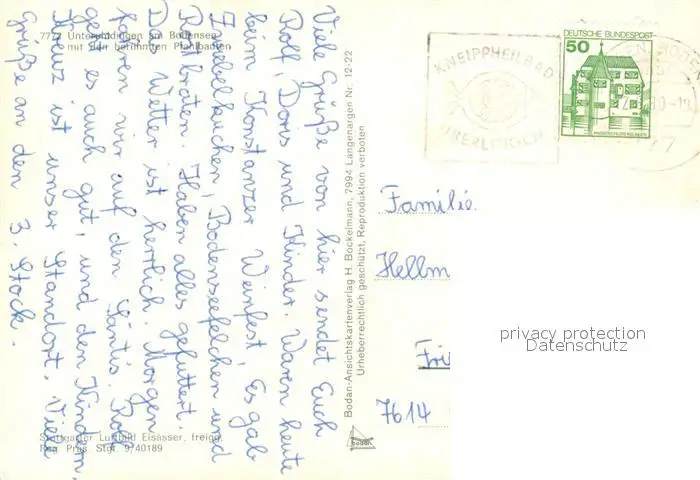 7772 Unteruhldingen am Bodensee
mit den berühmten Pfahlbauten
Viele Grüße von hier sendet Euch
Rolf, Doris und Kinder. Waren heute
beim Konstanzer Weinfest. Es gab
Zwiebelkuchen, Bodenseefelchen und
Rostbraten. Haben alles gefuttert.
Das Wetter ist herrlich. Morgen
fahren wir auf den Säntis. Rolf
geht es auch gut, und den Kindern.
Kreuz ist unser Standort. Viele
Grüße an den 3. Stock.
Stuttgarter Luftbild Elsässer, freigg.
Reg. Präs. Stgt. 9/40189
Bodan-Ansichtskartenverlag H. Bockelmann, 7994 Langenargen Nr. 12-22
Urheberrechtlich geschützt, Reproduktion verboten
bodan
KNEIPPHEILBAD
ÜBERLINGEN
DEUTSCHE BUNDESPOST
50
Familie
Hellm
7614
privacy protection
Datenschutz